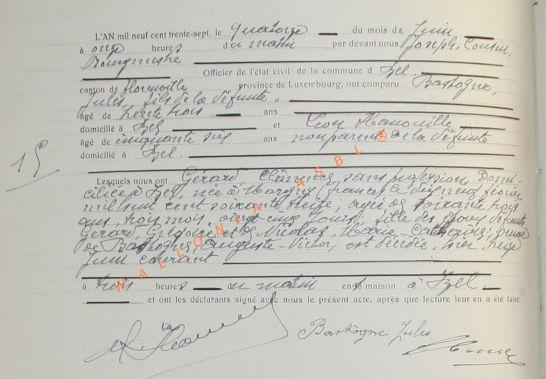 L'AN mil neuf cent trente-sept, le quatorze du mois de Juin
à onze heures du matin par devant nous Joseph Cousin,
Bourgmestre
Officier de l'état civil de la commune d'Izel
canton de Florenville province de Luxembourg, ont comparu Bastogne,
Jules, fils de la défunte
âgé de trente trois ans
domicilié à Izel et Léon
âgé de cinquante six ans non parent de la défunte
domicilié à Izel.
15
Lesquels nous ont Gérard Clémence, sans profession, domi-
ciliée à Izel née à Margny (France) le dix neuf février
mil huit cent soixante treize, âgée de soixante trois
ans, trois mois, vingt-cinq jours, fille des époux défunts
Gérard, Grégoire et Nicolas, Marie Catherine; veuve
de Bastogne Auguste-Victor, est décédée hier treize
Juin courant
à trois heures du matin en sa maison à Izel.
et ont les déclarants signé avec nous le présent acte, après que lecture leur en a été faite.
Bastogne Jules
WALLONIA ASBL ©